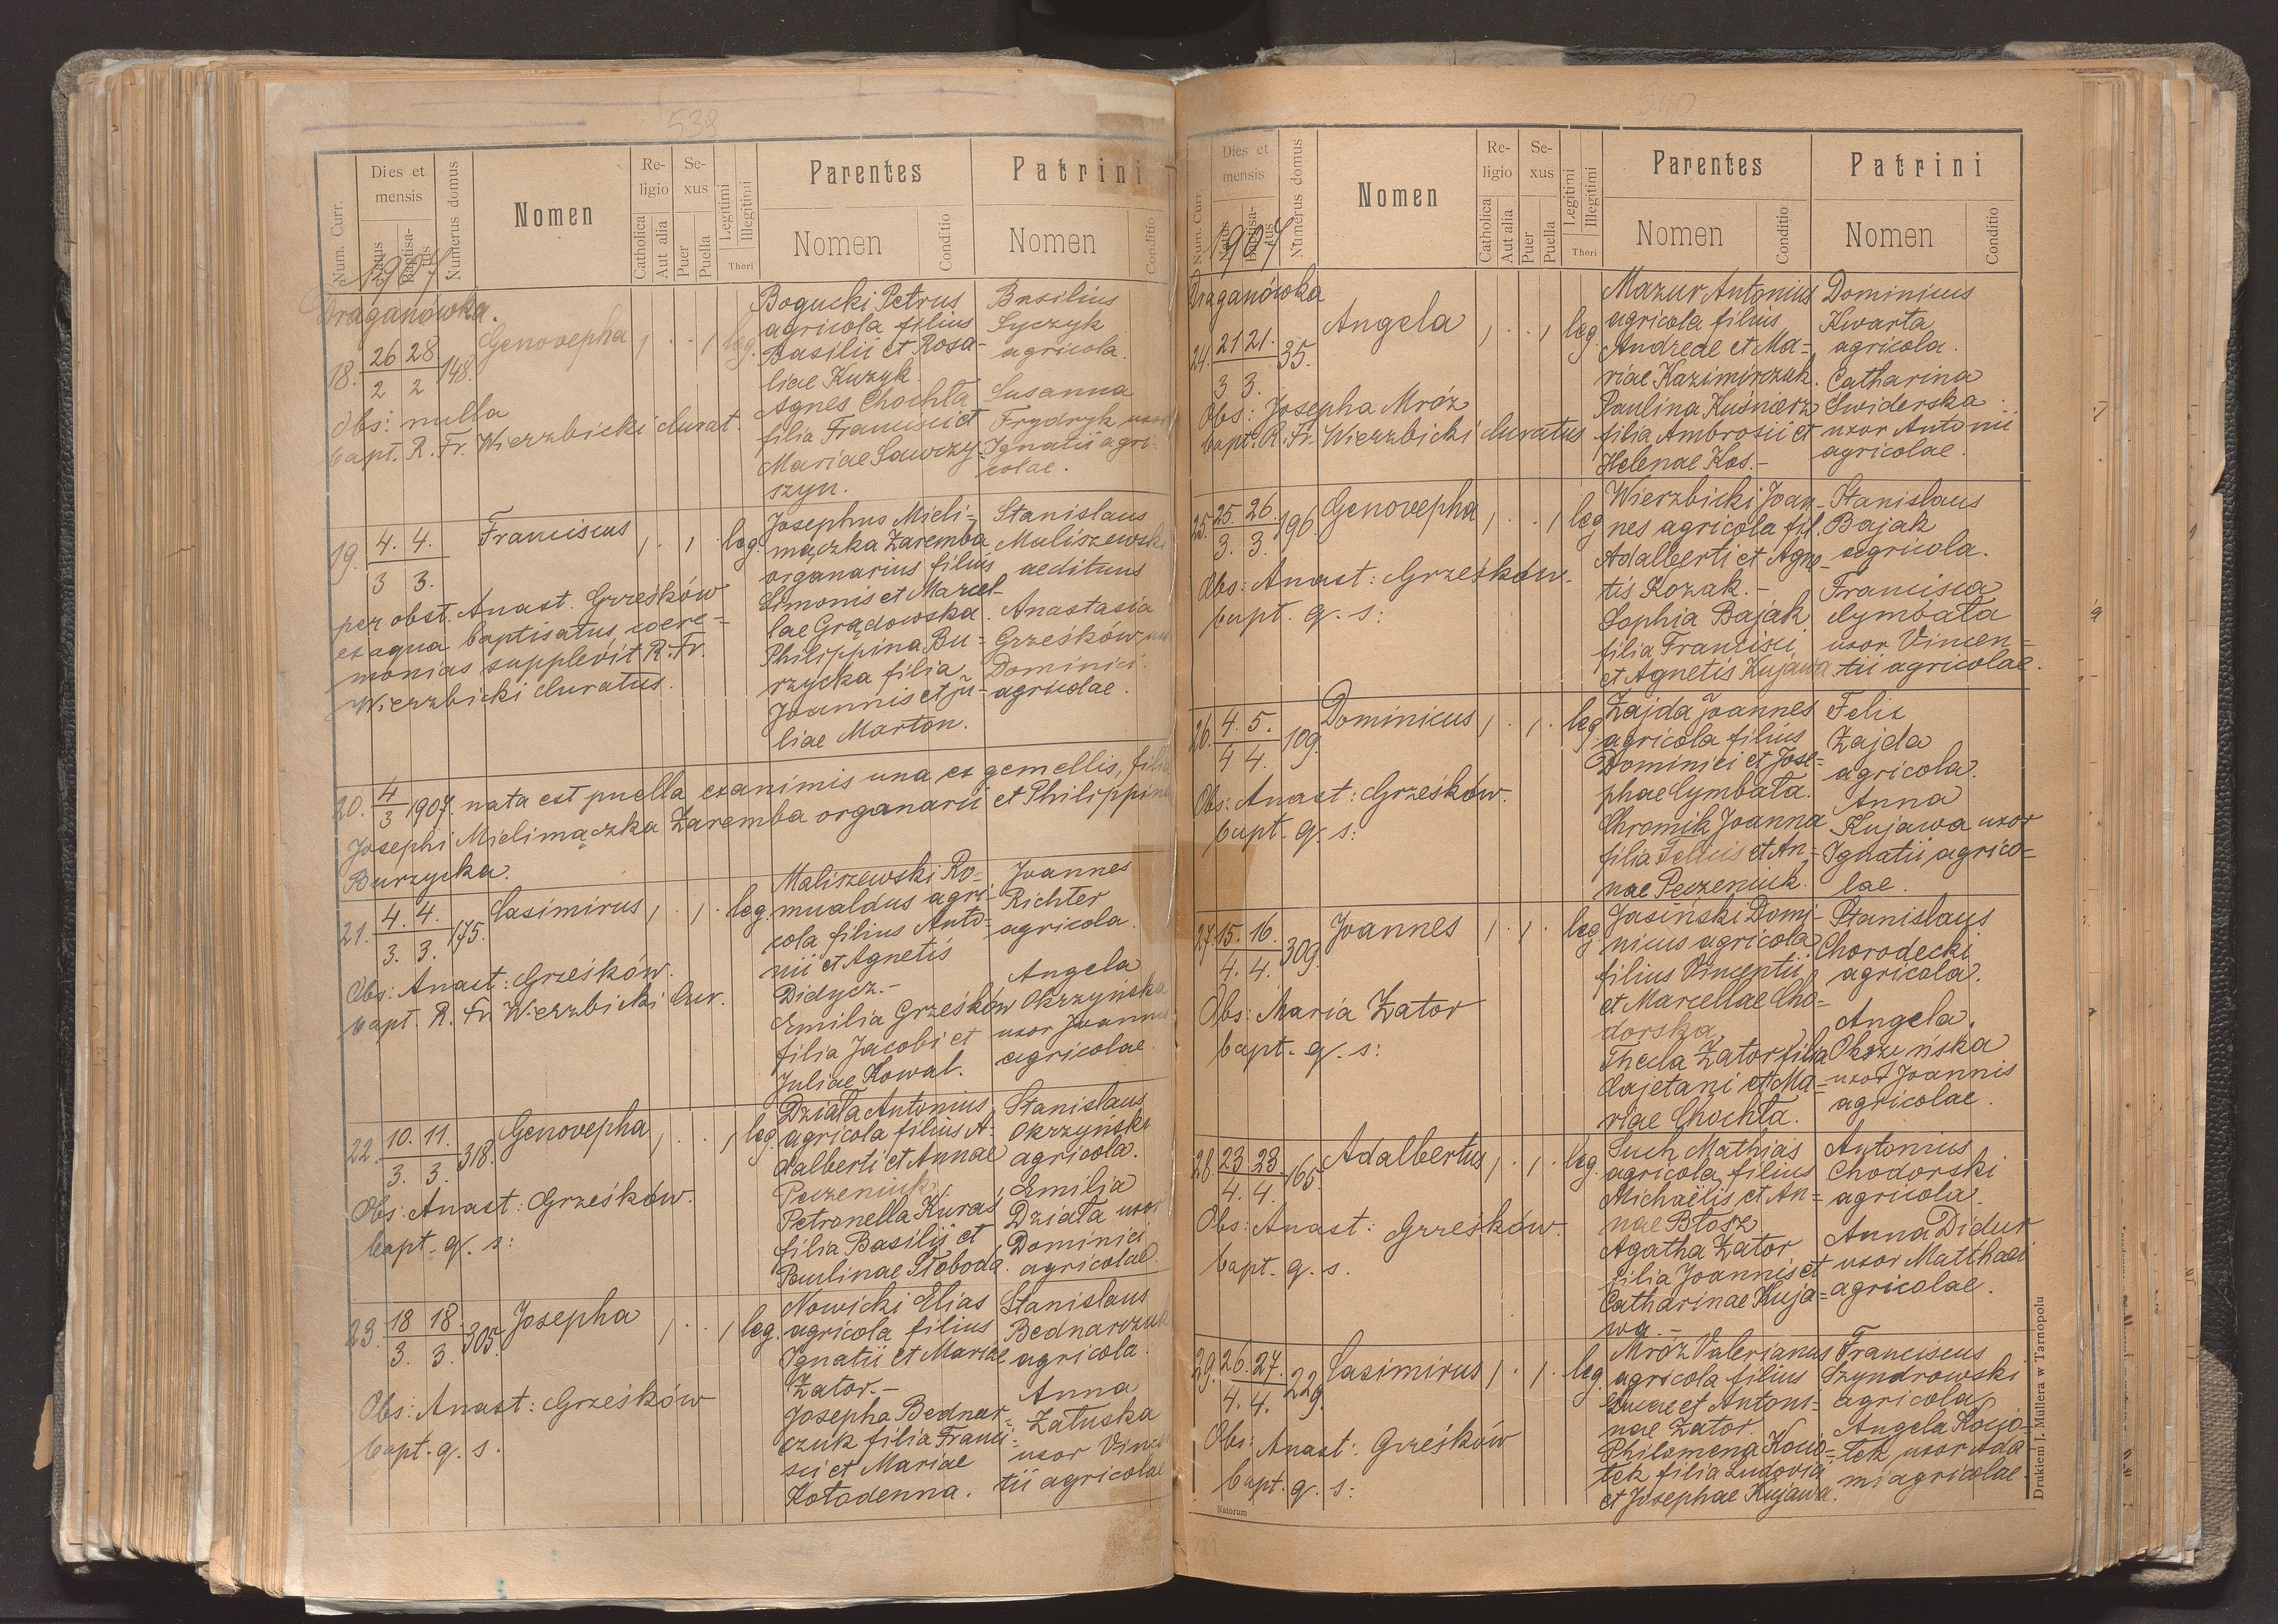 539
Num. Curr.
Dies et mensis
Natus
Baptisatus
Numerus domus
Nomen
Religio
Catholica
Aut alia
Sexus
Puer
Puella
Legitimi
Illegitimi
Thori
Parentes
Nomen
Conditio
Patrini
Nomen
Conditio
1907
Draganówka.
18. 26/2 28/2 148. Genovepha , . . , leg.
Obs: nulla
bapt. R. Fr. Wierzbicki Curat.
Bogucki Petrus
agricola filius
Basilii et Rosa-
liae Kuzyk.
Agnes Chochła
filia Francisci et
Mariae Sawczy-
szyn.
Basilius
Syczyk
agricola.
Susanna
Frydryk uxor
Ignatii agri-
colae.
19. 4./3 4./3. Franciscus , . , . leg.
per obst. Anast. Grześków
ex aqua baptisatus, coere-
monias supplevit R. Fr.
Wierzbicki Curatus.
Josephus Mieli-
mączka Zaremba
organarius filius
Simonis et Marcel-
lae Grądowska.
Philippina Bu-
rzycka filia
Joannis et Ju-
liae Marton.
Stanislaus
Maliszewski
aedituus
Anastasia
Grześków
Dominici
agricolae.
20. 4/3 1907. nata est puella exanimis una ex gemellis, filia
Josephi Mielimączka Zaremba organarii et Philippina
Burzycka.
21. 4./3. 4./3. 175. Casimirus , . , . leg.
Obs: Anast: Grześków.
bapt. R. Fr. Wierzbicki Cur.
Maliszewski Ro-
mualdus agri-
cola filius Anto-
nii et Agnetis
Didycz.-
Emilia Grześków
filia Jacobi et
Juliae Kowal.
Joannes
Richter
agricola.
Angela
Okrzyńska
uxor Joannis
agricolae.
22. 10./3. 11./3. 318. Genovepha , . . , leg.
Obs: Anast: Grześków.
bapt. q. s:
Działa Antonius
agricola filius A-
dalberti et Annae
Peczeniuk
Petronella Kuraś
filia Basilii et
Paulinae Słoboda.
Stanislaus
Okrzyński
agricola.
Emilia
Działa uxor
Dominici
agricolae.
23. 18/3. 18/3. 305. Josepha , . . , leg.
Obs: Anast: Grześków
bapt. q. s.
Nowicki Elias
agricola filius
Ignatii et Mariae
Zator.-
Josepha Bednar-
czuk filia Franci-
sci et Mariae
Kołodenna.
Stanislaus
Bednarczuk
agricola.
Anna
Załuska
uxor Vincen
tii agricolae
540
Num. Curr.
Dies et mensis
Baptisatus
Numerus domus
Nomen
Religio
Catholica
Aut alia
Sexus
Puer
Puella
Legitimi
Illegitimi
Thori
Parentes
Nomen
Conditio
Patrini
Nomen
Conditio
1907
Draganówka
24. 21/3 21./3. 35. Angela , . . , leg.
Obs: Josepha Mróz
bapt. R. Fr. Wierzbicki Curatus
Mazur Antonius
agricola filius
Andreae et Ma-
riae Kazimirczuk.
Paulina Kuśnierz
filia Ambrosii et
Helenae Kos.-
Dominicus
Kwarta
agricola.
Catharina
Swiderska
uxor Antonii
agricolae.
25. 25./3. 26./3. 196. Genovepha , . . , leg.
Obs: Anast: Grześków.
bapt. q. s:
Wierzbicki Joan-
nes agricola fil.
Adalberti et Agne-
tis Kozak.-
Sophia Bajak
filia Francisci
et Agnetis Kujawa
Stanislaus
Bajak
agricola.
Francisca
Cymbała
uxor Vincen-
tii agricolae.
26. 4./4 5./4. 109. Dominicus , . , . leg.
Obs: Anast: Grześków.
bapt. q. s:
Zajda Joannes
agricola filius
Dominici et Jose-
phae Cymbała.
Chromik Joanna
filia Felicis et An-
nae Peczeniuk.
Felix
Zajda
agricola.
Anna
Kujawa uxor
Ignatii agrico-
lae.
27. 15./4. 16./4. 309. Joannes , . , . leg.
Obs: Maria Zator
bapt. q. s:
Jasiński Domi-
nicus agricola
filius Vincentii
et Marcellae Cho-
dorska
Thecla Zator filia
Cajetani et Ma-
riae Chochła.
Stanislaus
Chorodecki
agricola.
Angela
Okrzyńska
uxor Joannis
agricolae.
28. 23/4. 23/4. 165. Adalbertus , . , . leg.
Obs: Anast: Grześków.
bapt. q. s.
Such Mathias
agricola filius
Michaëlis et An-
nae Błosz
Agatha Zator
filia Joannis et
Catharinae Kuja-
wa.-
Antonius
Chodorski
agricola.
Anna Didur
uxor Matthaei
agricolae.
29. 26./4. 27./4. 229. Casimirus , . , . leg.
Obs: Anast: Grześków
bapt. q. s:
Mróz Valerianus
agricola filius
Lucae et Antoni-
nae Zator.
Philomena Koció-
łek filia Ludovici
et Josephae Kujawa.
Franciscus
Szyndrowski
agricola
Angela Koció-
łek uxor Ada
mi agricolae.
Natorum
Drukiem J. Müllera w Tarnopolu